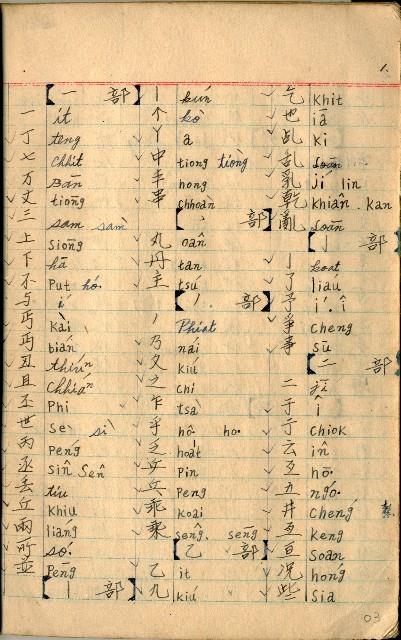 1.
【一 部】
一 it
丁 teng
七 Chhit
万 Bān
丈 tiōng
三 sam sàm
上 Siōng
下 hā
不 Put hó·
与 í
丐 Kài
丏 bián
丑 thiúⁿ
且 Chhiáⁿ
丕 Phi
世 Sè sì
丙 péng
丞 sîn Sên
丢 tiu
丘 Khiu
兩 liang
所 só·
並 Pēng
【丨 部】
丨 kún
个 kò
丫 a
中 tiong tiòng
丰 hong
串 chhoàn
【丶 部】
丸 oân
丹 tan
主 tsú
【丿 部】
丿 Phiat
乃 nái
之 chi
乍 tsà
乎 hô· ho·
乏 hoát
乒 Pin
乓 Peng
乖 Koai
乘 sêng. sēng
【乙 部】
乙 it
九 kiú
乞 Khit
也 iā
乩 Ki
乱 soān
乳 jí lin
乾 khiân. Kan
亂 soān
【亅 部】
亅 koat
了 liáu
予 í. î
爭 cheng
事 sū
【二 部】
二 jī
于 î
亍 Chiok
云 în
互 hō·
五 ngó·
井 chéng
亙 Keng
亘 soan
况 hóng
些 Sia
03